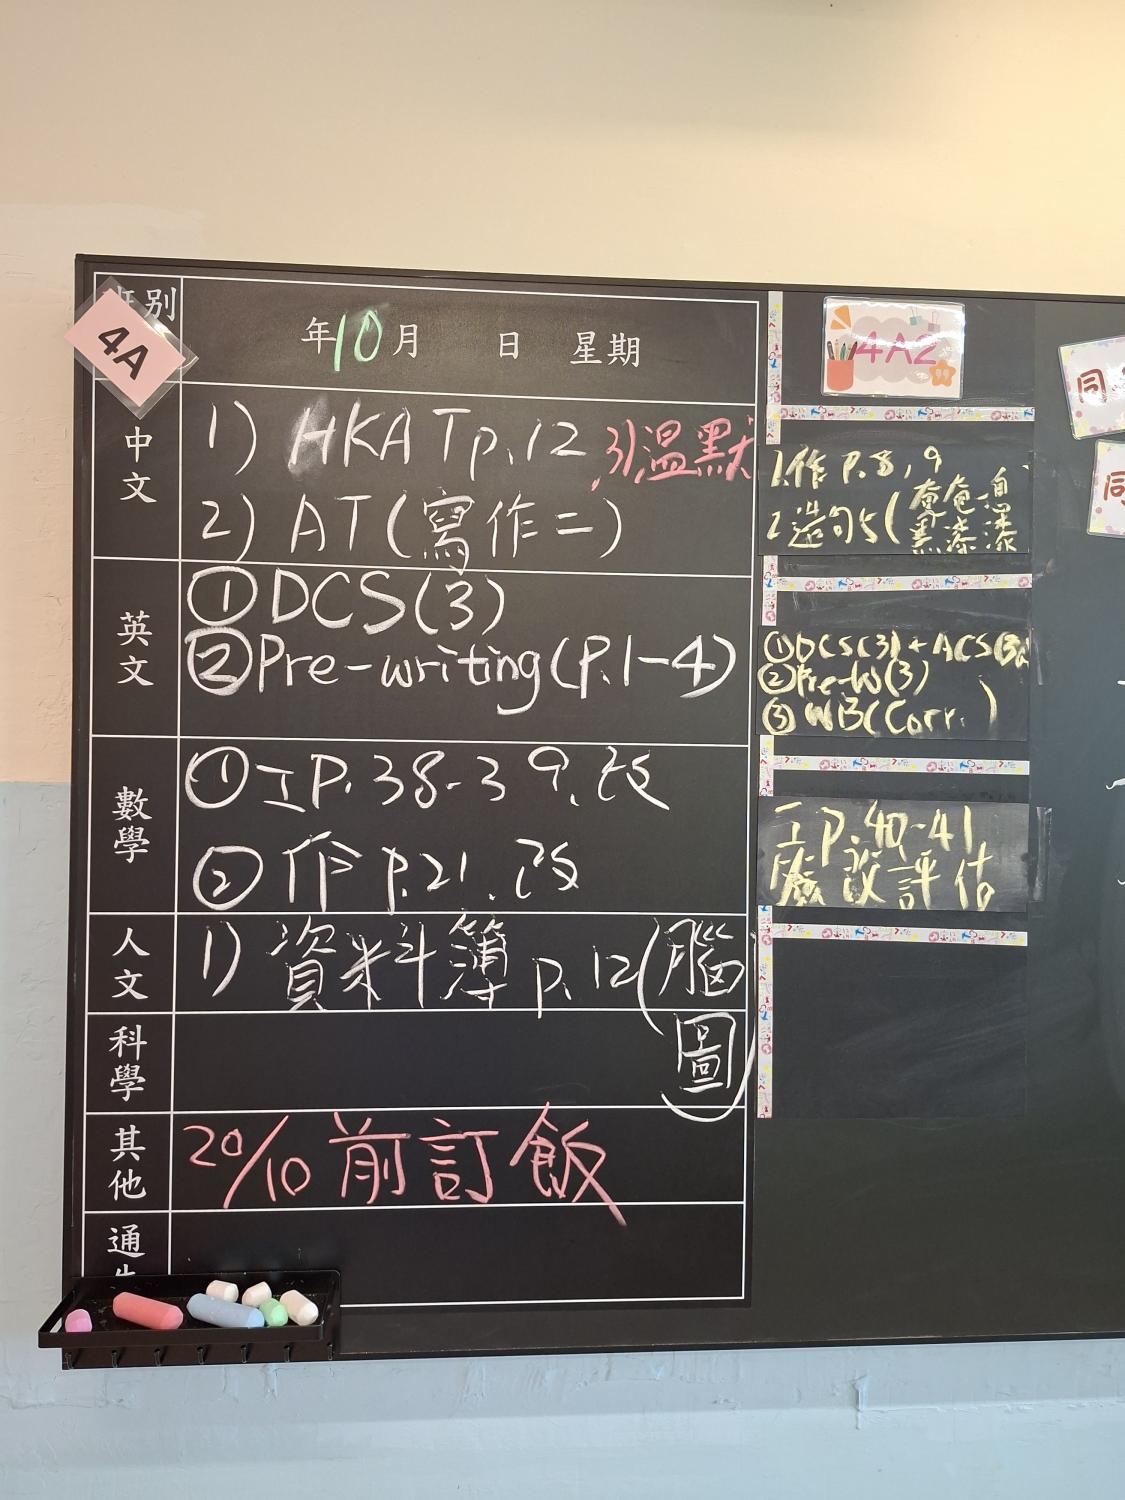 班別
4A
年10月 日 星期
中文
1) HKAT p.12 3)溫默
2) AT(寫作二)
英文
①DCS(3)
②Pre-writing(P.1-4)
數學
①工P.38-39.改
②作P.21.改
人文
1) 資料簿 p.12(腦
圖)
科學
其他
20/10 前訂飯
通
4A2
1.作P.8,9
2.造句5(奄奄一息
黑漆漆
①DCS(3)+ACS(3)
②Pre-W(3)
③WB(Corr.)
工p.40-41
改評估
同
同